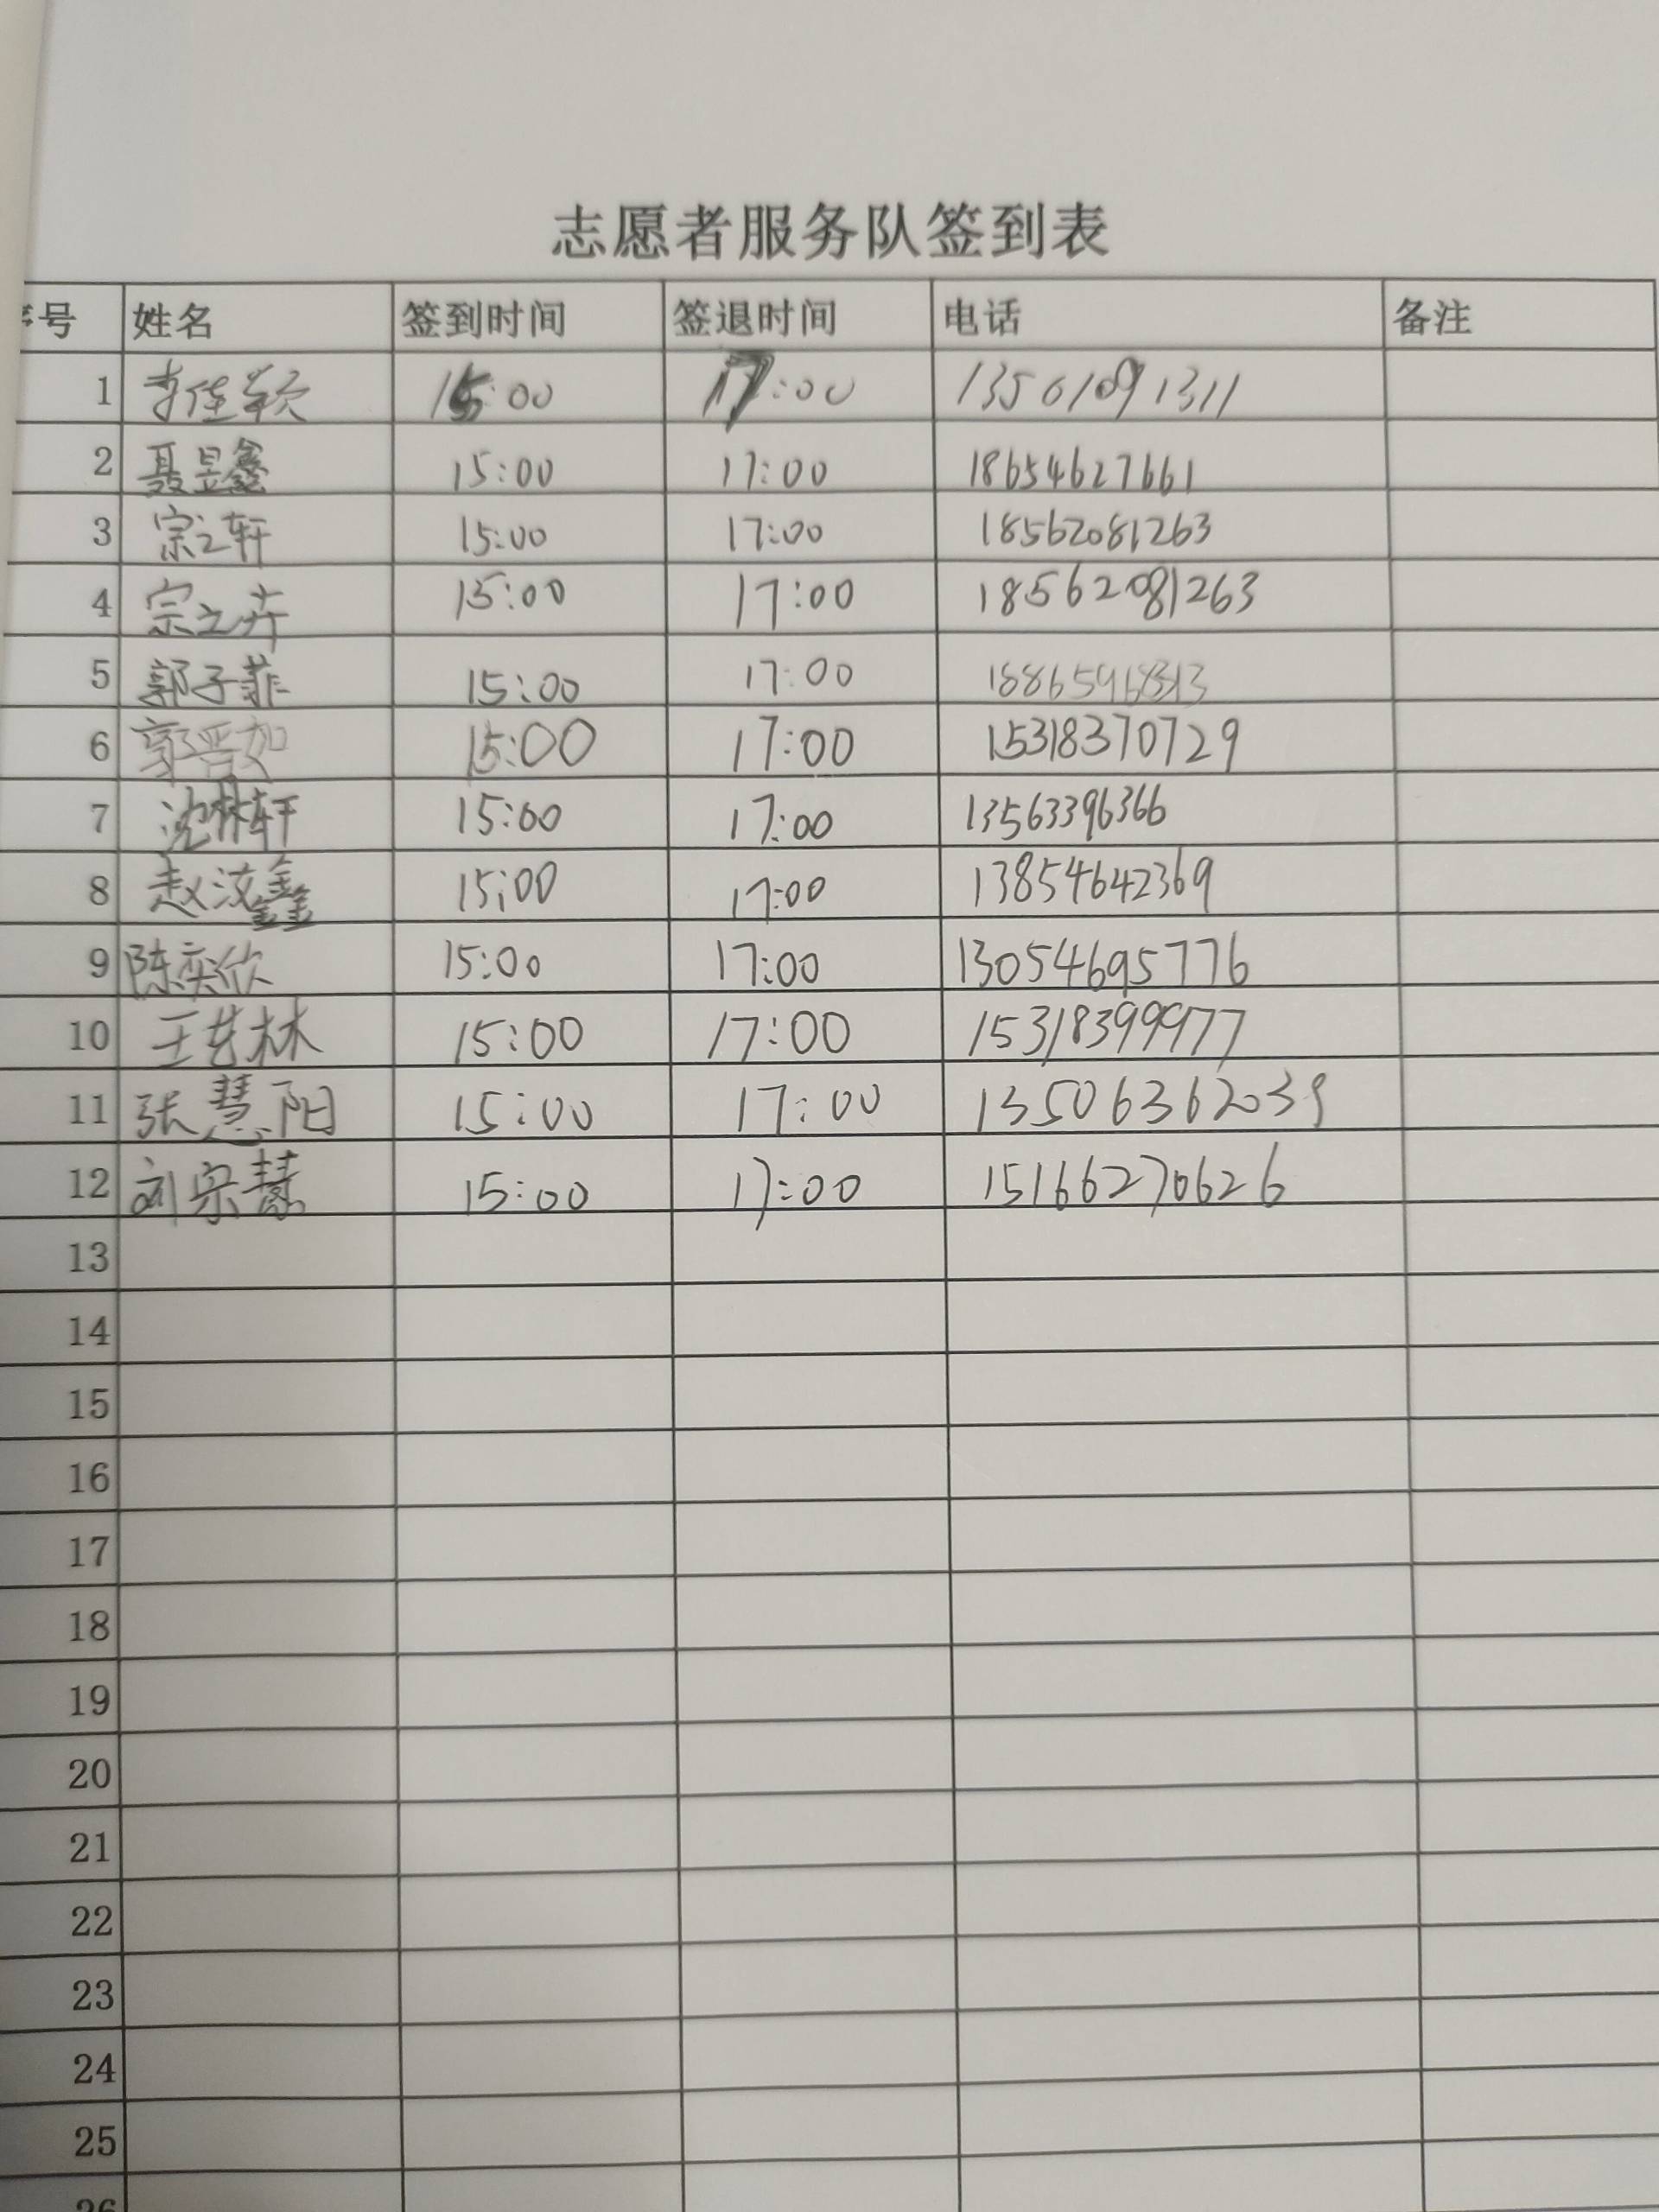 志愿者服务队签到表
序号 姓名 签到时间 签退时间 电话 备注
1 李佳软 15:00 17:00 13561091311
2 聂昱鑫 15:00 17:00 18654627661
3 宗之轩 15:00 17:00 18562081263
4 宗之卉 15:00 17:00 18562081263
5 郭子菲 15:00 17:00
6 郭晋如 15:00 17:00 15318370729
7 沈林轩 15:00 17:00 13563396366
8 赵汶鑫 15:00 17:00 13854642369
9 陈奕欣 15:00 17:00 13054695776
10 王艺林 15:00 17:00 15318399977
11 张慧阳 15:00 17:00 13506362039
12 刘宗慧 15:00 17:00 15166270626
13
14
15
16
17
18
19
20
21
22
23
24
25
26